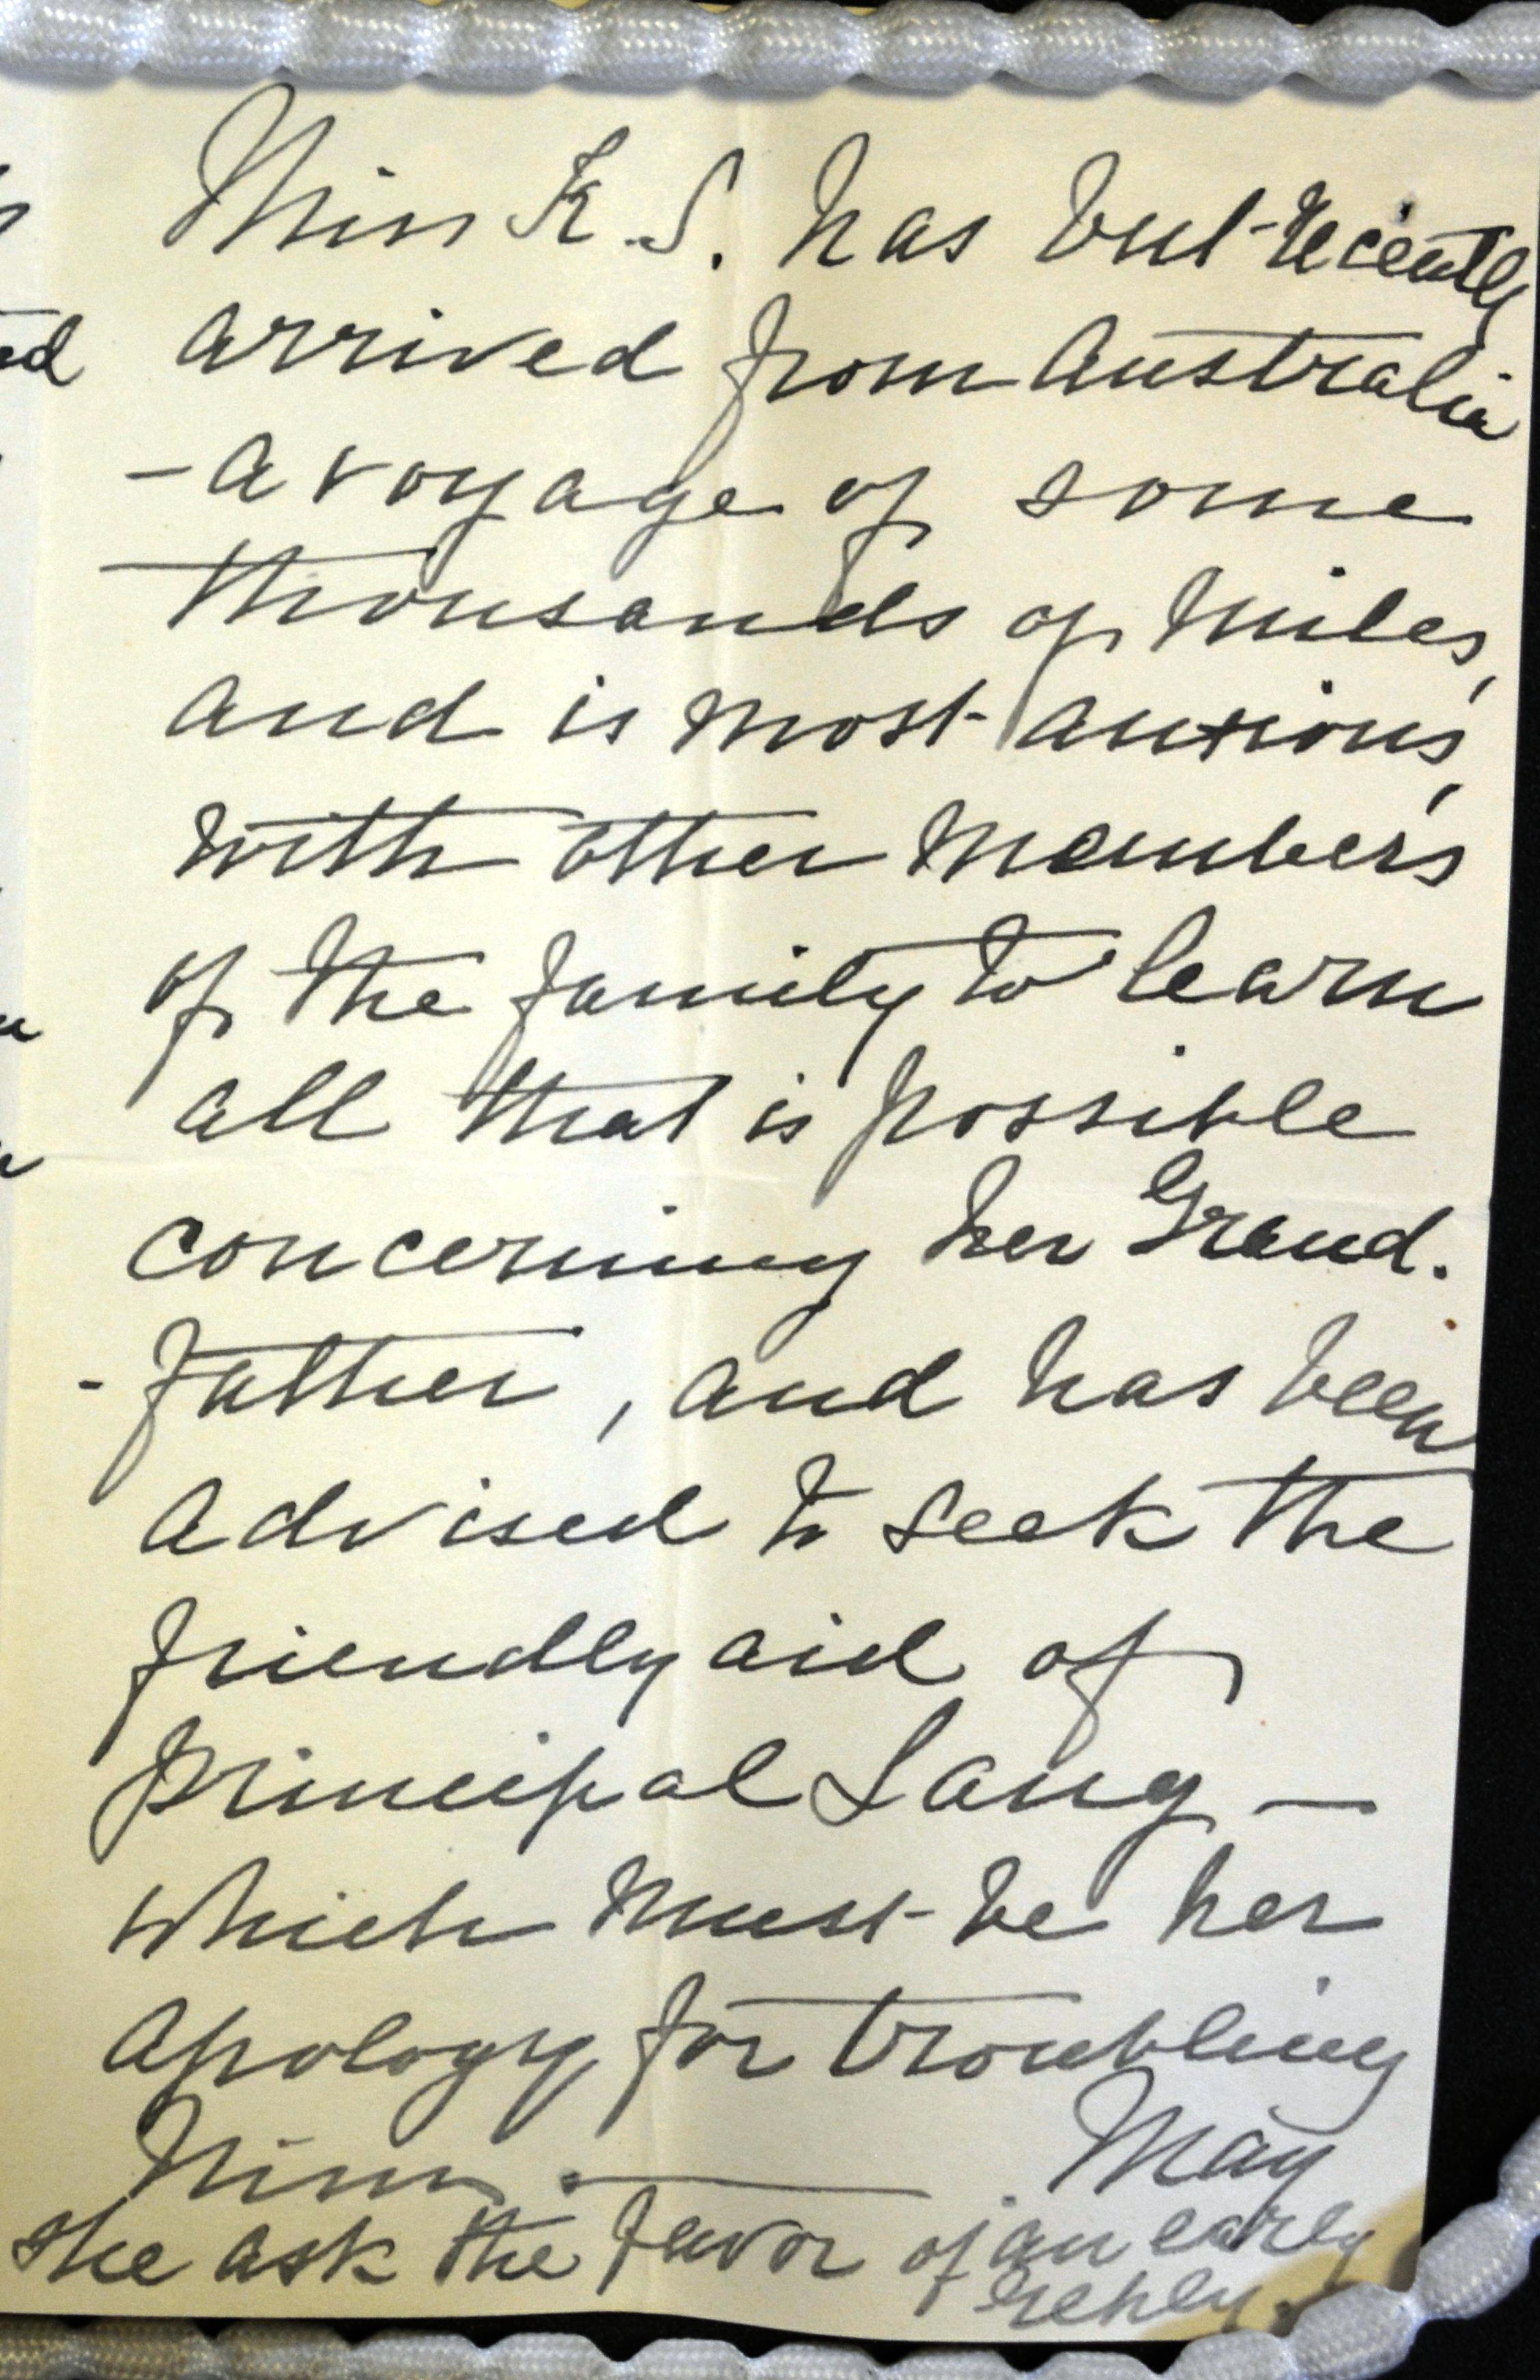 Miss K. S. has but recently
arrived from Australia
- a voyage of some
thousands of miles,
and is most anxious,
with other members
of the family to learn
all that is possible
concerning her Grand.
- father, and has been
advised to seek the
friendly aid of
Principal Lang —
which must be her
apology for troubling
him. — May
she ask the favor of an early
reply.